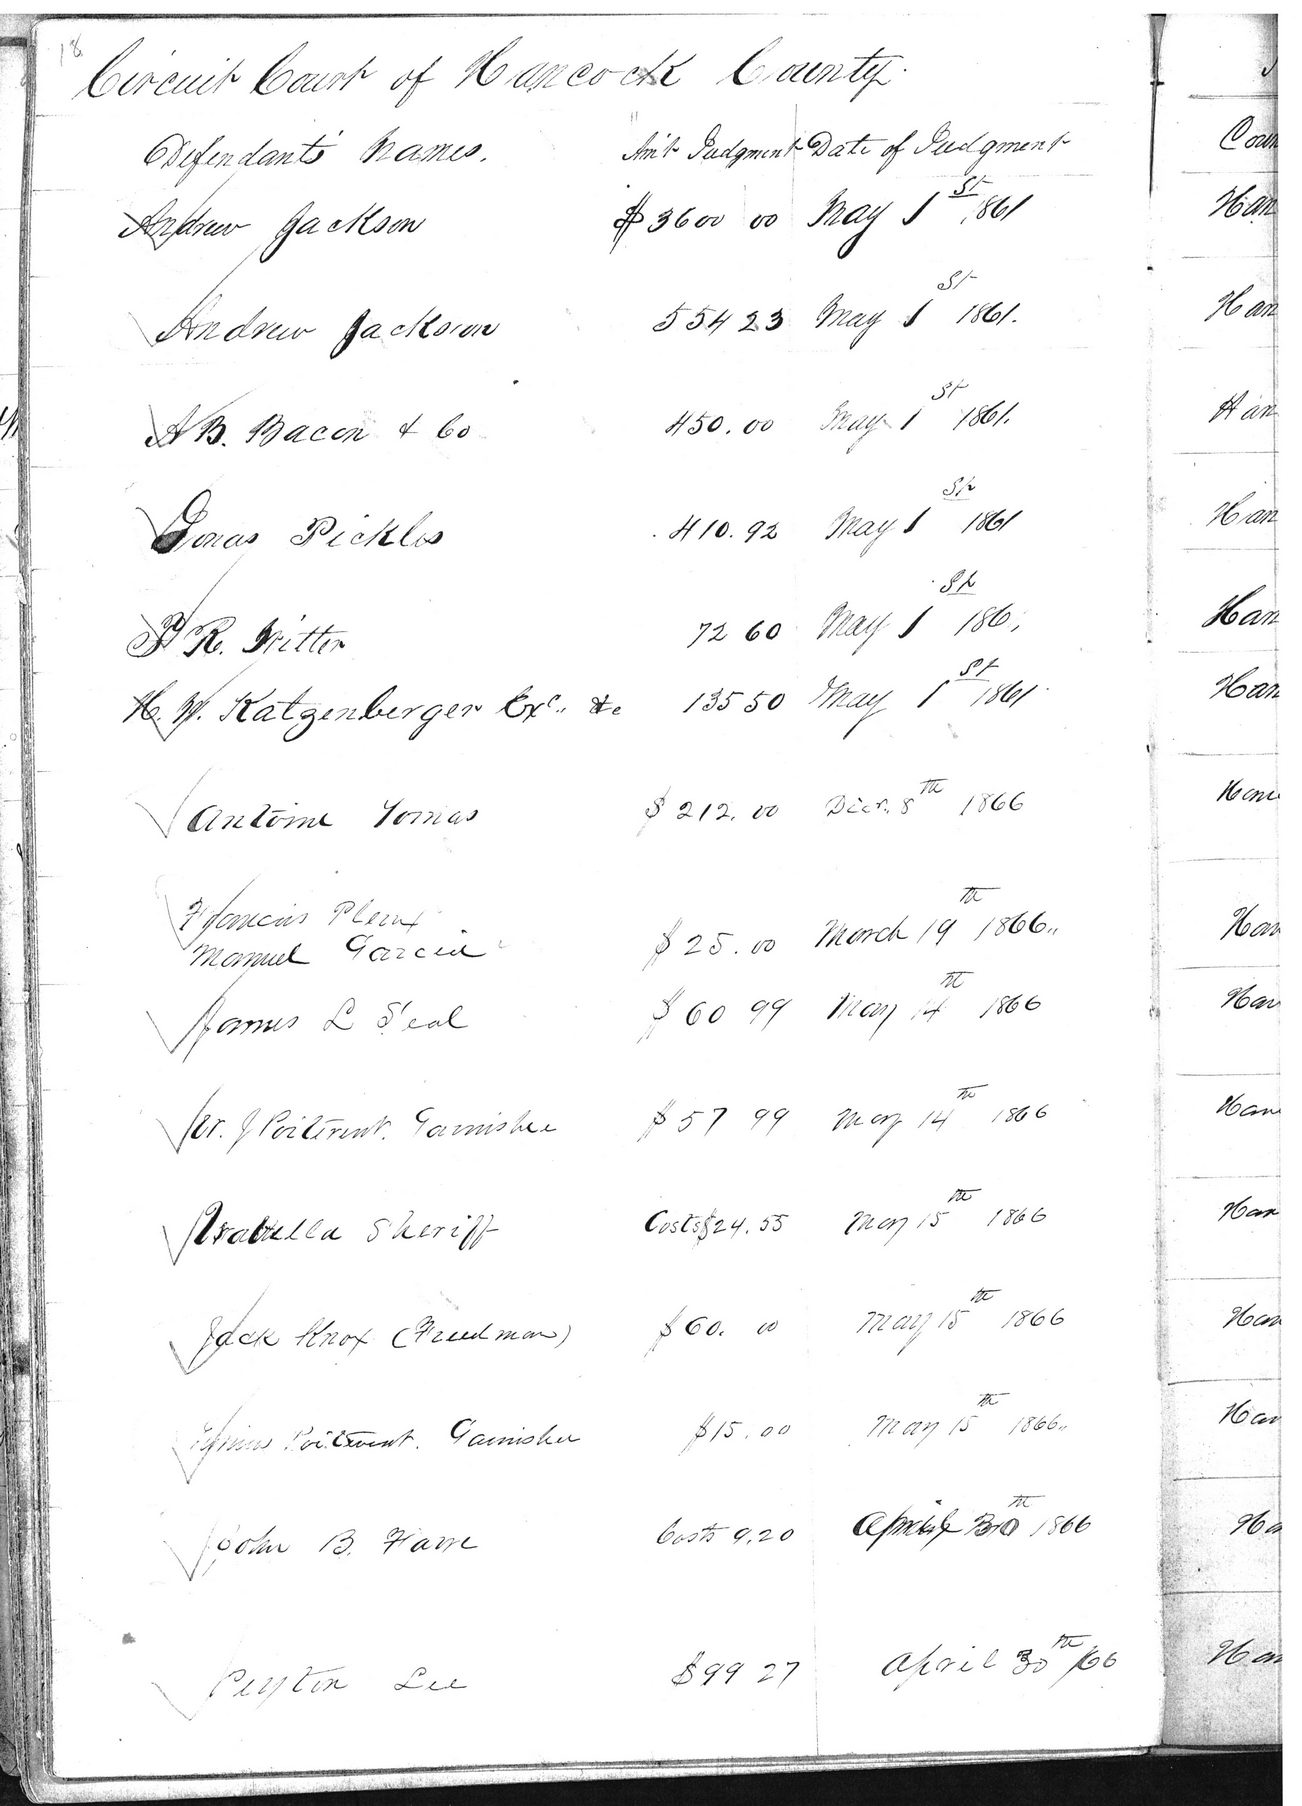 18
Circuit Court of Hancock County.
Defendants Names. Am't Judgment Date of Judgment
Andrew Jackson $3600 00 May 1st 1861
Andrew Jackson 554 23 May 1st 1861.
A B. Bacon & Co 450.00 May 1st 1861.
Jonas Pickles 410.92 May 1st 1861
R. Witter 72 60 May 1st 186
H. W. Katzenberger Exc., &c 135 50 May 1st 1861
Antoine Tomas $212.00 Decr. 8th 1866
Francis
Manuel Garcia $25.00 March 19th 1866..
James L Seal $60 99 May 14th 1866
W. J Poitevent. Garnishee $57 99 May 14th 1866
Isabella Sheriff Costs $24.55 May 15th 1866
Jack Knox (Freedman) $60. 00 May 15th 1866
Poitevent. Garnishee $15.00 May 15th 1866..
John B. Farve Costs 9.20 April 30th 1866
Peyton Lee $99 27 April 30th /66
Coun
Han
Han
Han
Han
Han
Han
Hanc
Han
Han
Han
Han
Han
Han
Ha
Han